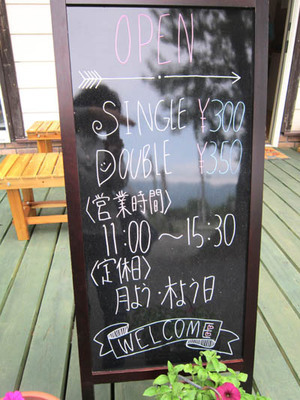 OPEN
SINGLE ¥300
DOUBLE ¥350
〈営業時間〉
11:00〜15:30
〈定休日〉
月よう・木よう日
WELCOME